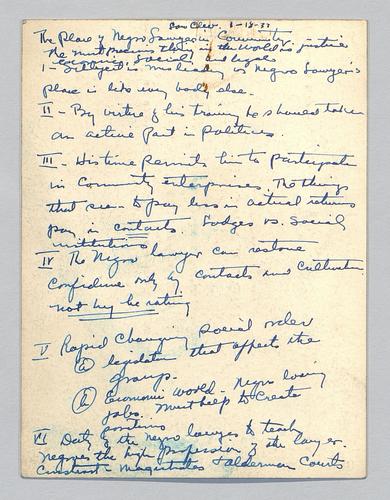 Bar Cleve. 1-18-33
The Place of Negro Lawyer in Community
He must possess thing in the world is justice
economic, social, and legal
I - Subject is misleading as Negro Lawyer's
place is like any body else.
II - By virtue of his training he should take
an active part in politics.
III - His time permits him to participate
in Community enterprises. The things
that seem to pay less in actual returns
pay in contacts. Lodges vs. Social
institutions
IV The Negro lawyer can restore
confidence only by contacts and cultivation
not by berating
V Rapid Changing social order
(a) legislation that affects the
groups.
(b) Economic world - Negro losing
jobs. Must help to create
positions
VI Duty of the negro lawyer to teach
Negroes the high profession of the lawyer.
Constant magistrates & alderman Courts